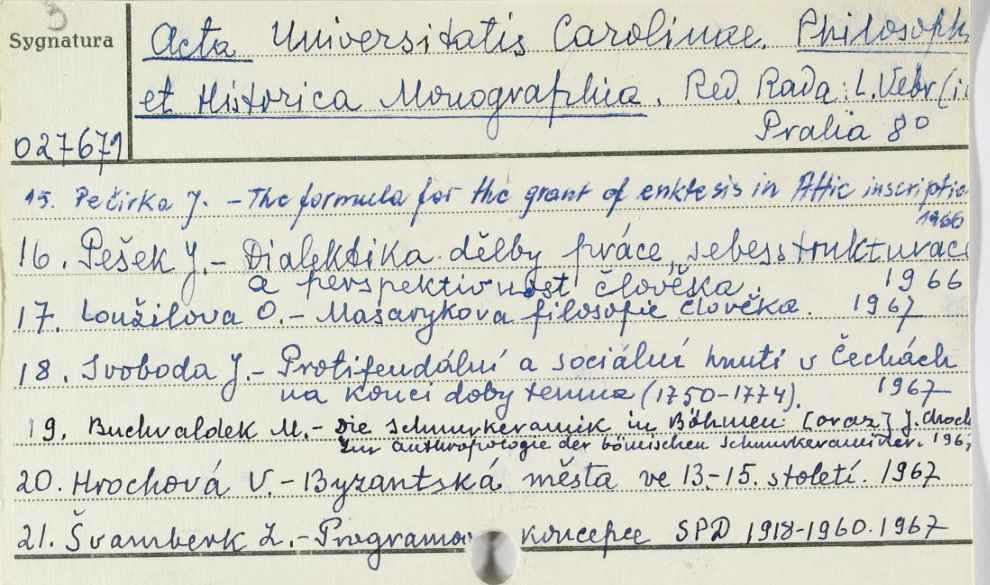 Sygnatura
Acta Universitatis Carolinae. Philosoph
et Historica Monographia. Red. Rada: L. Vebr (i
Praha 8°
027679
15. Pečirka J. - The formula for the grant of enktesis in Attic inscriptio
1966
16. Pešek J. - Dialektika dělby práce, sebesstrukturac
a perspektivnost člověka. 1966
17. Loužilova O. - Masarykova filosofie člověka. 1967
18. Svoboda J. - Protifeudální a sociální hnutí v Čechách
na konci doby temna (1750-1774). 1967
19. Buchvaldek M. - Die Schnurkeramik in Böhmen [oraz] J. Choch
Zur anthropologie der bömischen Schnurkeramiker. 196
20. Hrochová V. - Byzantská města ve 13.-15. století. 1967
21. Švamberk Z. - Programo koncepce SPD 1918-1960. 1967